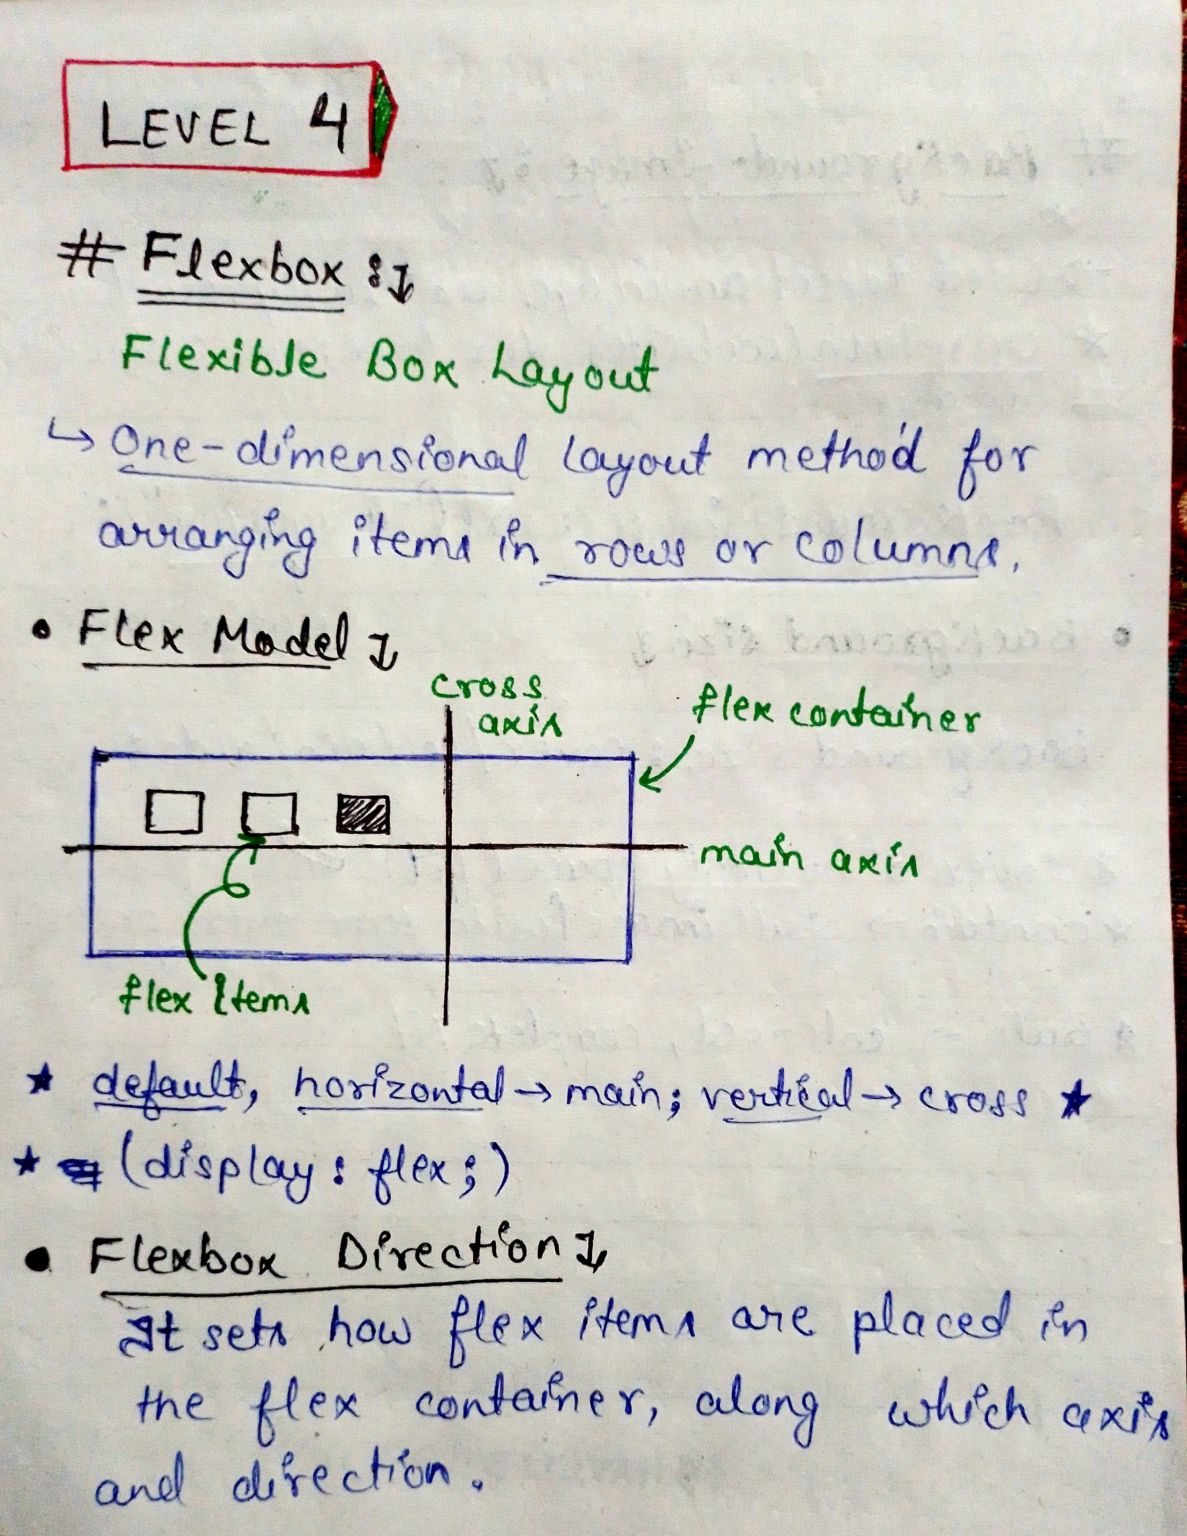 LEVEL 4
# Flexbox :
Flexible Box Layout
↳ One-dimensional layout method for
arranging items in rows or columns.
• Flex Model
cross
axis
flex container
main axis
flex items
★ default, horizontal → main; vertical → cross ★
★ (display : flex;)
• Flexbox Direction
It sets how flex items are placed in
the flex container, along which axis
and direction.